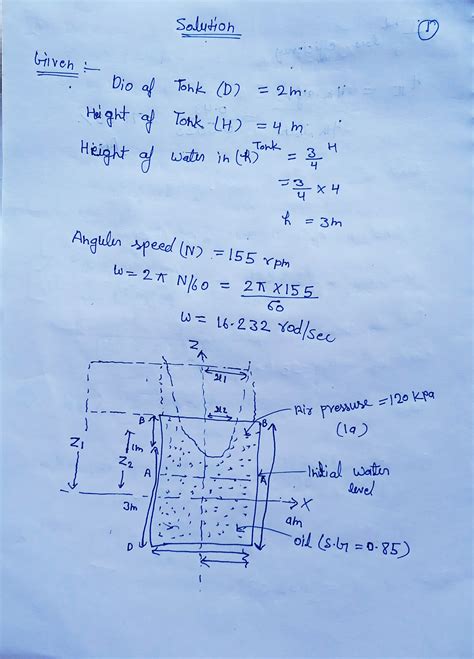 Solution
1
Given :-
Dia of Tank (D) = 2m.
Height of Tank (H) = 4 m
Height of water in Tank (h) = 3/4 H
= 3/4 × 4
h = 3m
Angular speed (N) = 155 rpm
ω = 2π N/60 = 2π × 155 / 60
ω = 16.232 rad/sec
Z
r1
r2
B
B
Air pressure = 120 kPa
(1a)
Z1
1m
Z2
A
A
Initial water
level
X
3m
4m
oil (S.G = 0.85)
D